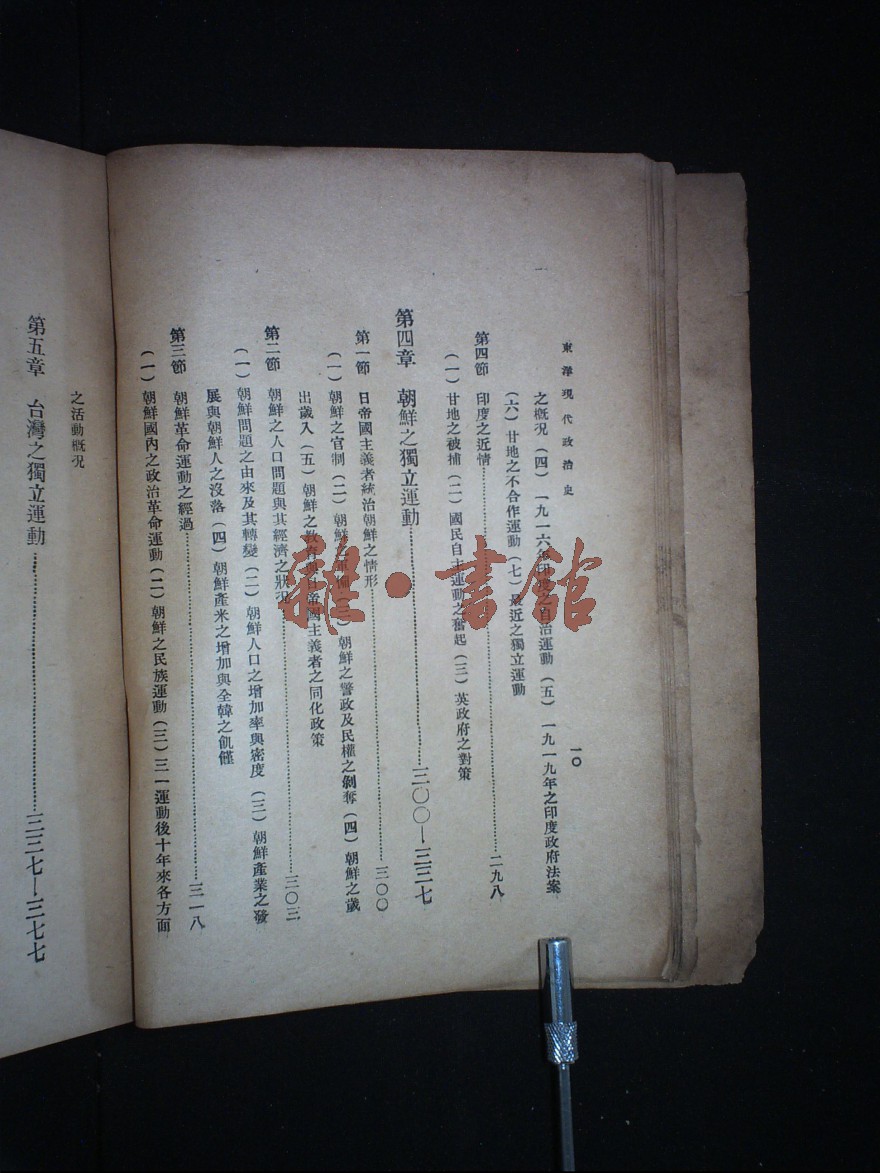 東洋現代政治史
一〇
之概況（四）一九一六年印度之自治運動（五）一九一九年之印度政府法案
（六）甘地之不合作運動（七）最近之獨立運動
第四節 印度之近情 二九八
（一）甘地之被捕（二）國民自主運動之奮起（三）英政府之對策
第四章 朝鮮之獨立運動 三〇〇—三二七
第一節 日帝國主義者統治朝鮮之情形 三〇〇
（一）朝鮮之官制（二）朝鮮之軍備（三）朝鮮之警政及民權之剝奪（四）朝鮮之歲
出歲入（五）朝鮮之教育與日帝國主義者之同化政策
第二節 朝鮮之人口問題與其經濟之狀況 三〇三
（一）朝鮮問題之由來及其轉變（二）朝鮮人口之增加率與密度（三）朝鮮產業之發
展與朝鮮人之沒落（四）朝鮮產米之增加與全韓之飢僅
第三節 朝鮮革命運動之經過 三一八
（一）朝鮮國內之政治革命運動（二）朝鮮之民族運動（三）三一運動後十年來各方面
之活動概況
第五章 台灣之獨立運動 三二七—三七七
雜·書館